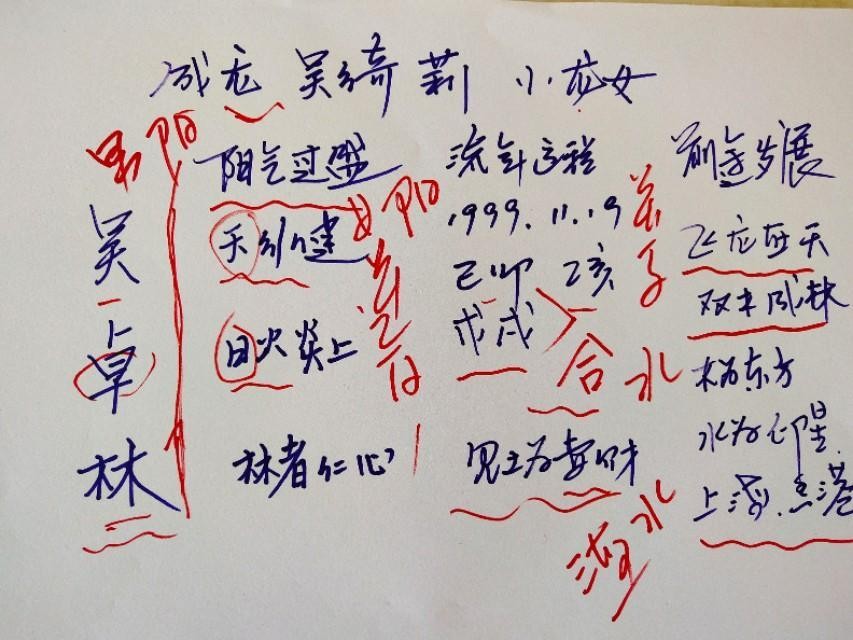 成龙 吴绮莉 小龙女
男阳
吴
卓
林
阳气过盛
天行健
日火炎上
林者仁心
女阳
流年运程
1999.11.19
己卯 乙亥
戊戌
见土为妻财
合水
水
前途发展
飞龙在天
双木成林
木为东方
水为印星
上海.香港